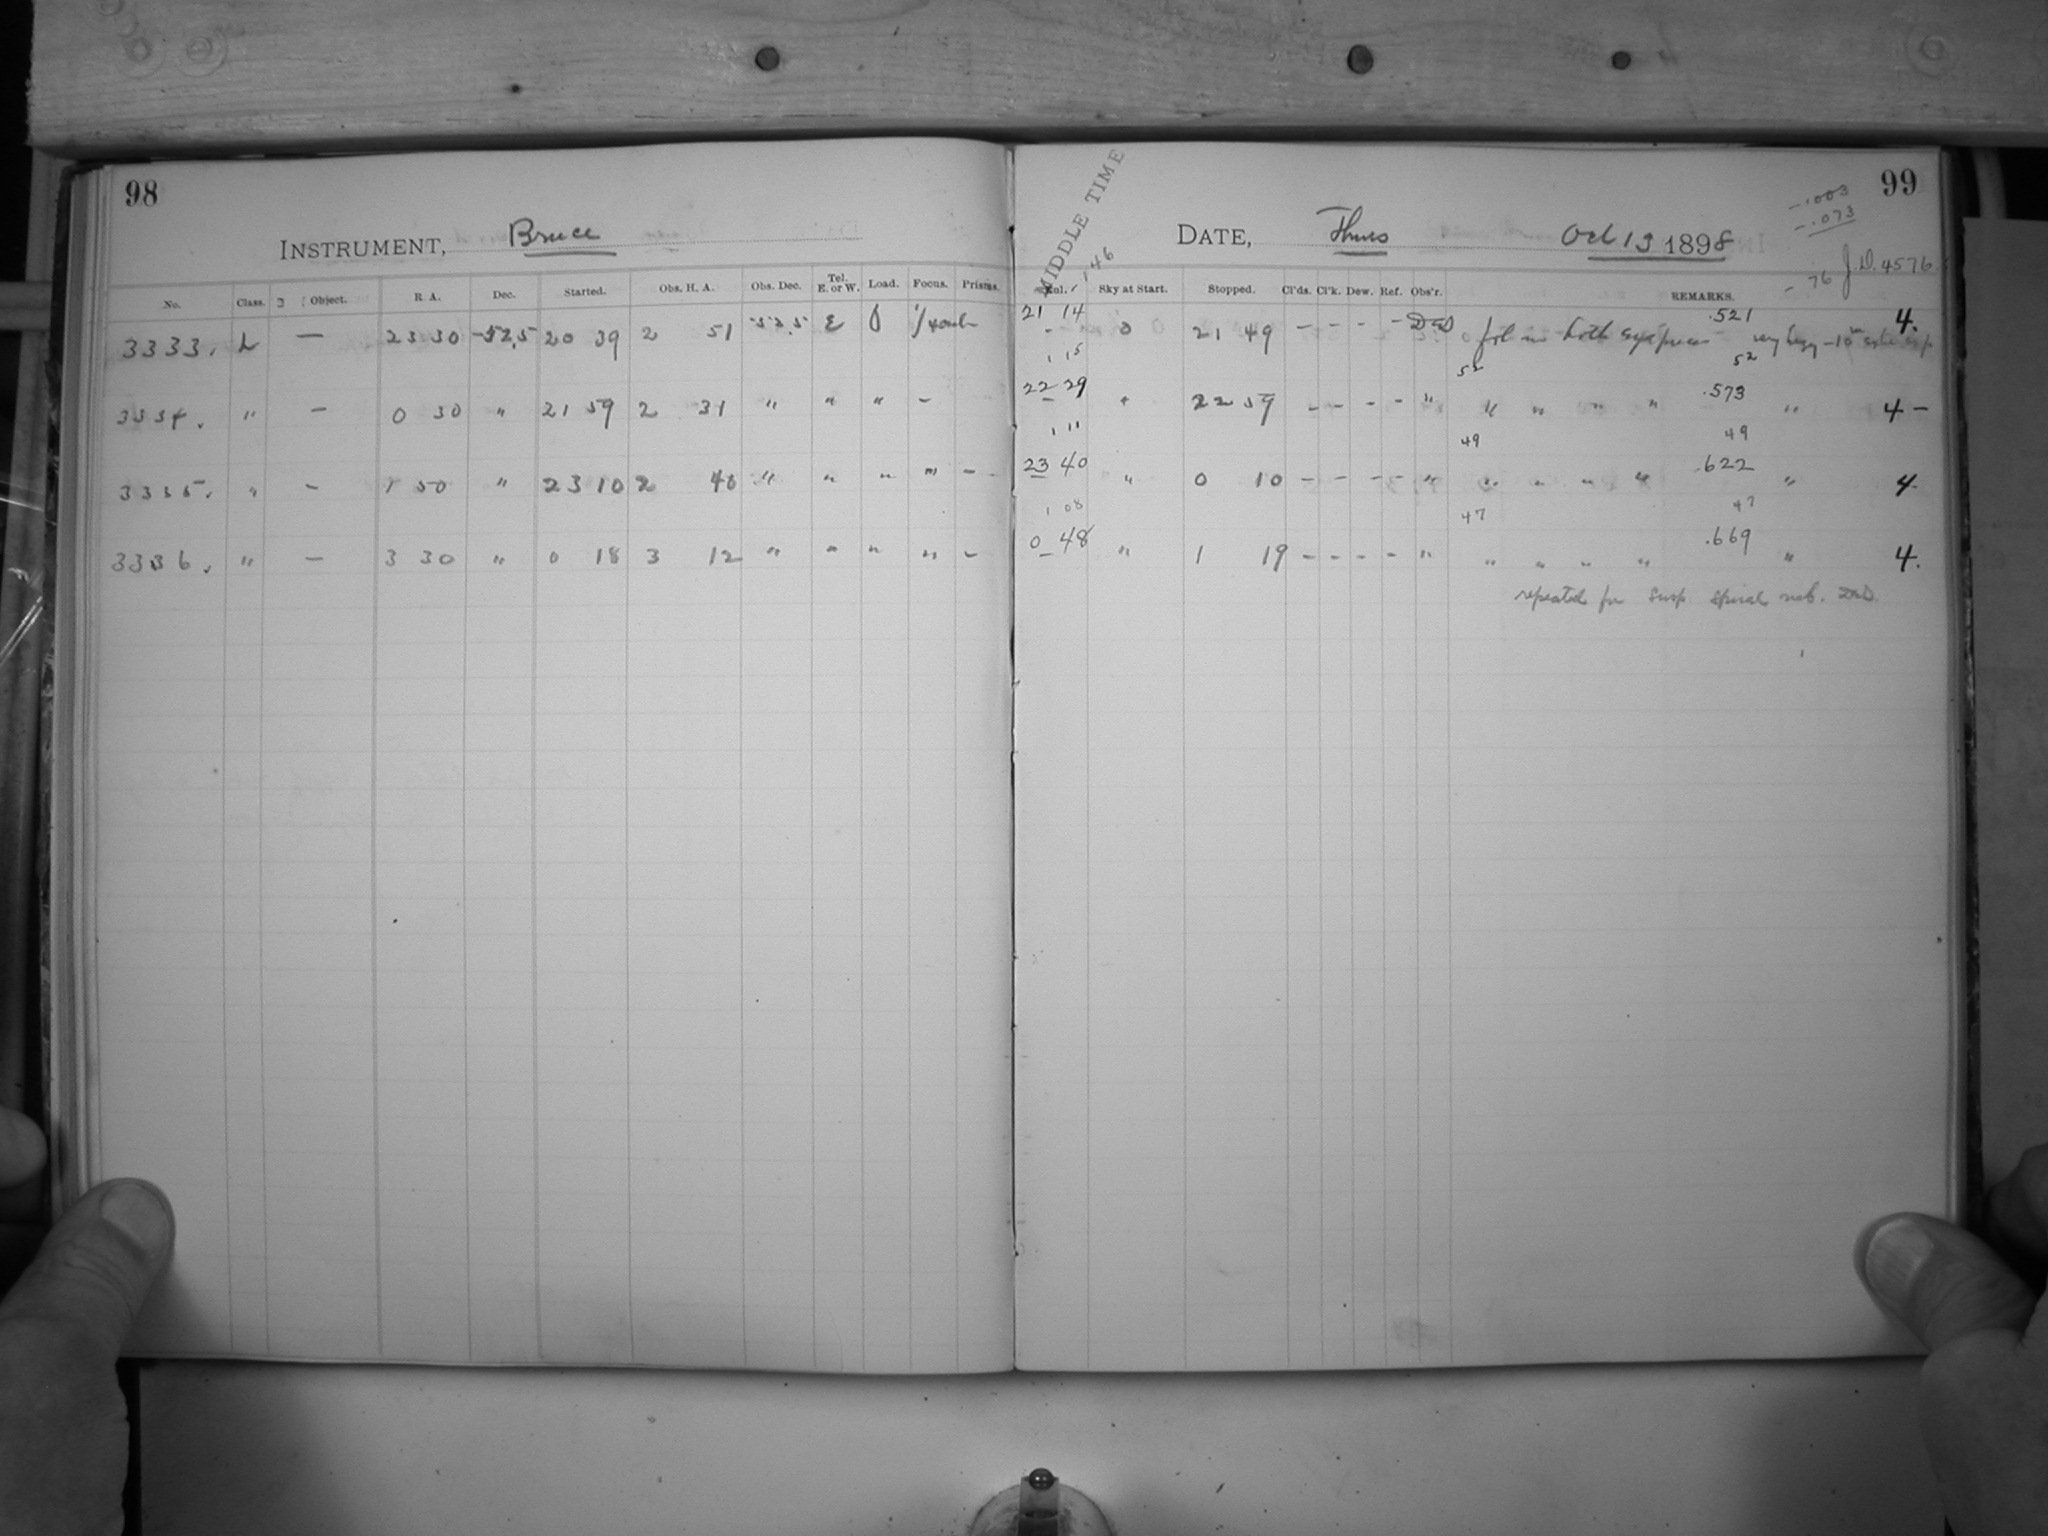 98
INSTRUMENT, Bruce
No. Class. Object. R A. Dec. Started. Obs. H. A. Obs. Dec. Tel. E. or W. Load. Focus. Prisms.
3333. L — 23 30 -52.5 20 39 2 51 -52.5 E 0
3334. " — 0 30 " 21 59 2 31 " " " –
3335. " – 1 50 " 23 10 2 40 " " " " – -
3336. " – 3 30 " 0 18 3 12 " " " " –
99
MIDDLE TIME
- .146
DATE, Thurs Oct 13 1898
-.003
-.073
- 76
J.D. 4576
Sky at Start. Stopped. Cl'ds. Cl'k. Dew. Ref. Obs'r. REMARKS.
21 14 0 21 49 – – - - in both very hazy –10m .521 4.
1 15 52 52
22 29 " 22 59 – – – – " " " " " .573 " 4 –
1 11 49 49
23 40 " 0 10 – – – – " " " " " .622 " 4
1 08 47 47
0 48 " 1 19 – – – – " " " " " .669 " 4.
repeated for susp. spiral neb.